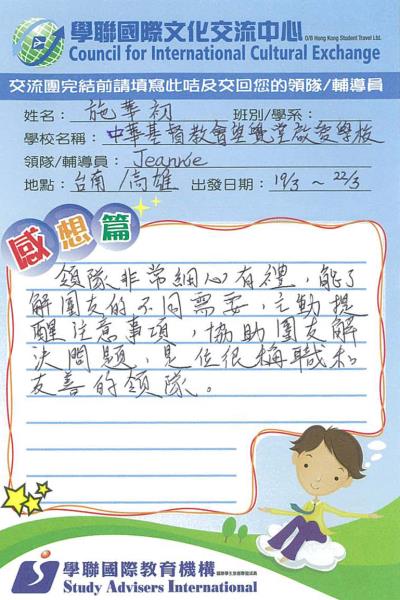 學聯國際文化交流中心 O/B Hong Kong Student Travel Ltd.
Council for International Cultural Exchange
交流團完結前請填寫此咭及交回您的領隊/輔導員
姓名: 施華初 班別/學系:
學校名稱: 中華基督教會望覺堂啟愛學校
領隊/輔導員: Jeannie
地點: 台南/高雄 出發日期: 19/3 ~ 22/3
感想篇
領隊非常細心有禮,能了
解團友的不同需要,主動提
醒注意事項,協助團友解
決問題,是位很稱職和
友善的領隊。
學聯國際教育機構
Study Advisers International